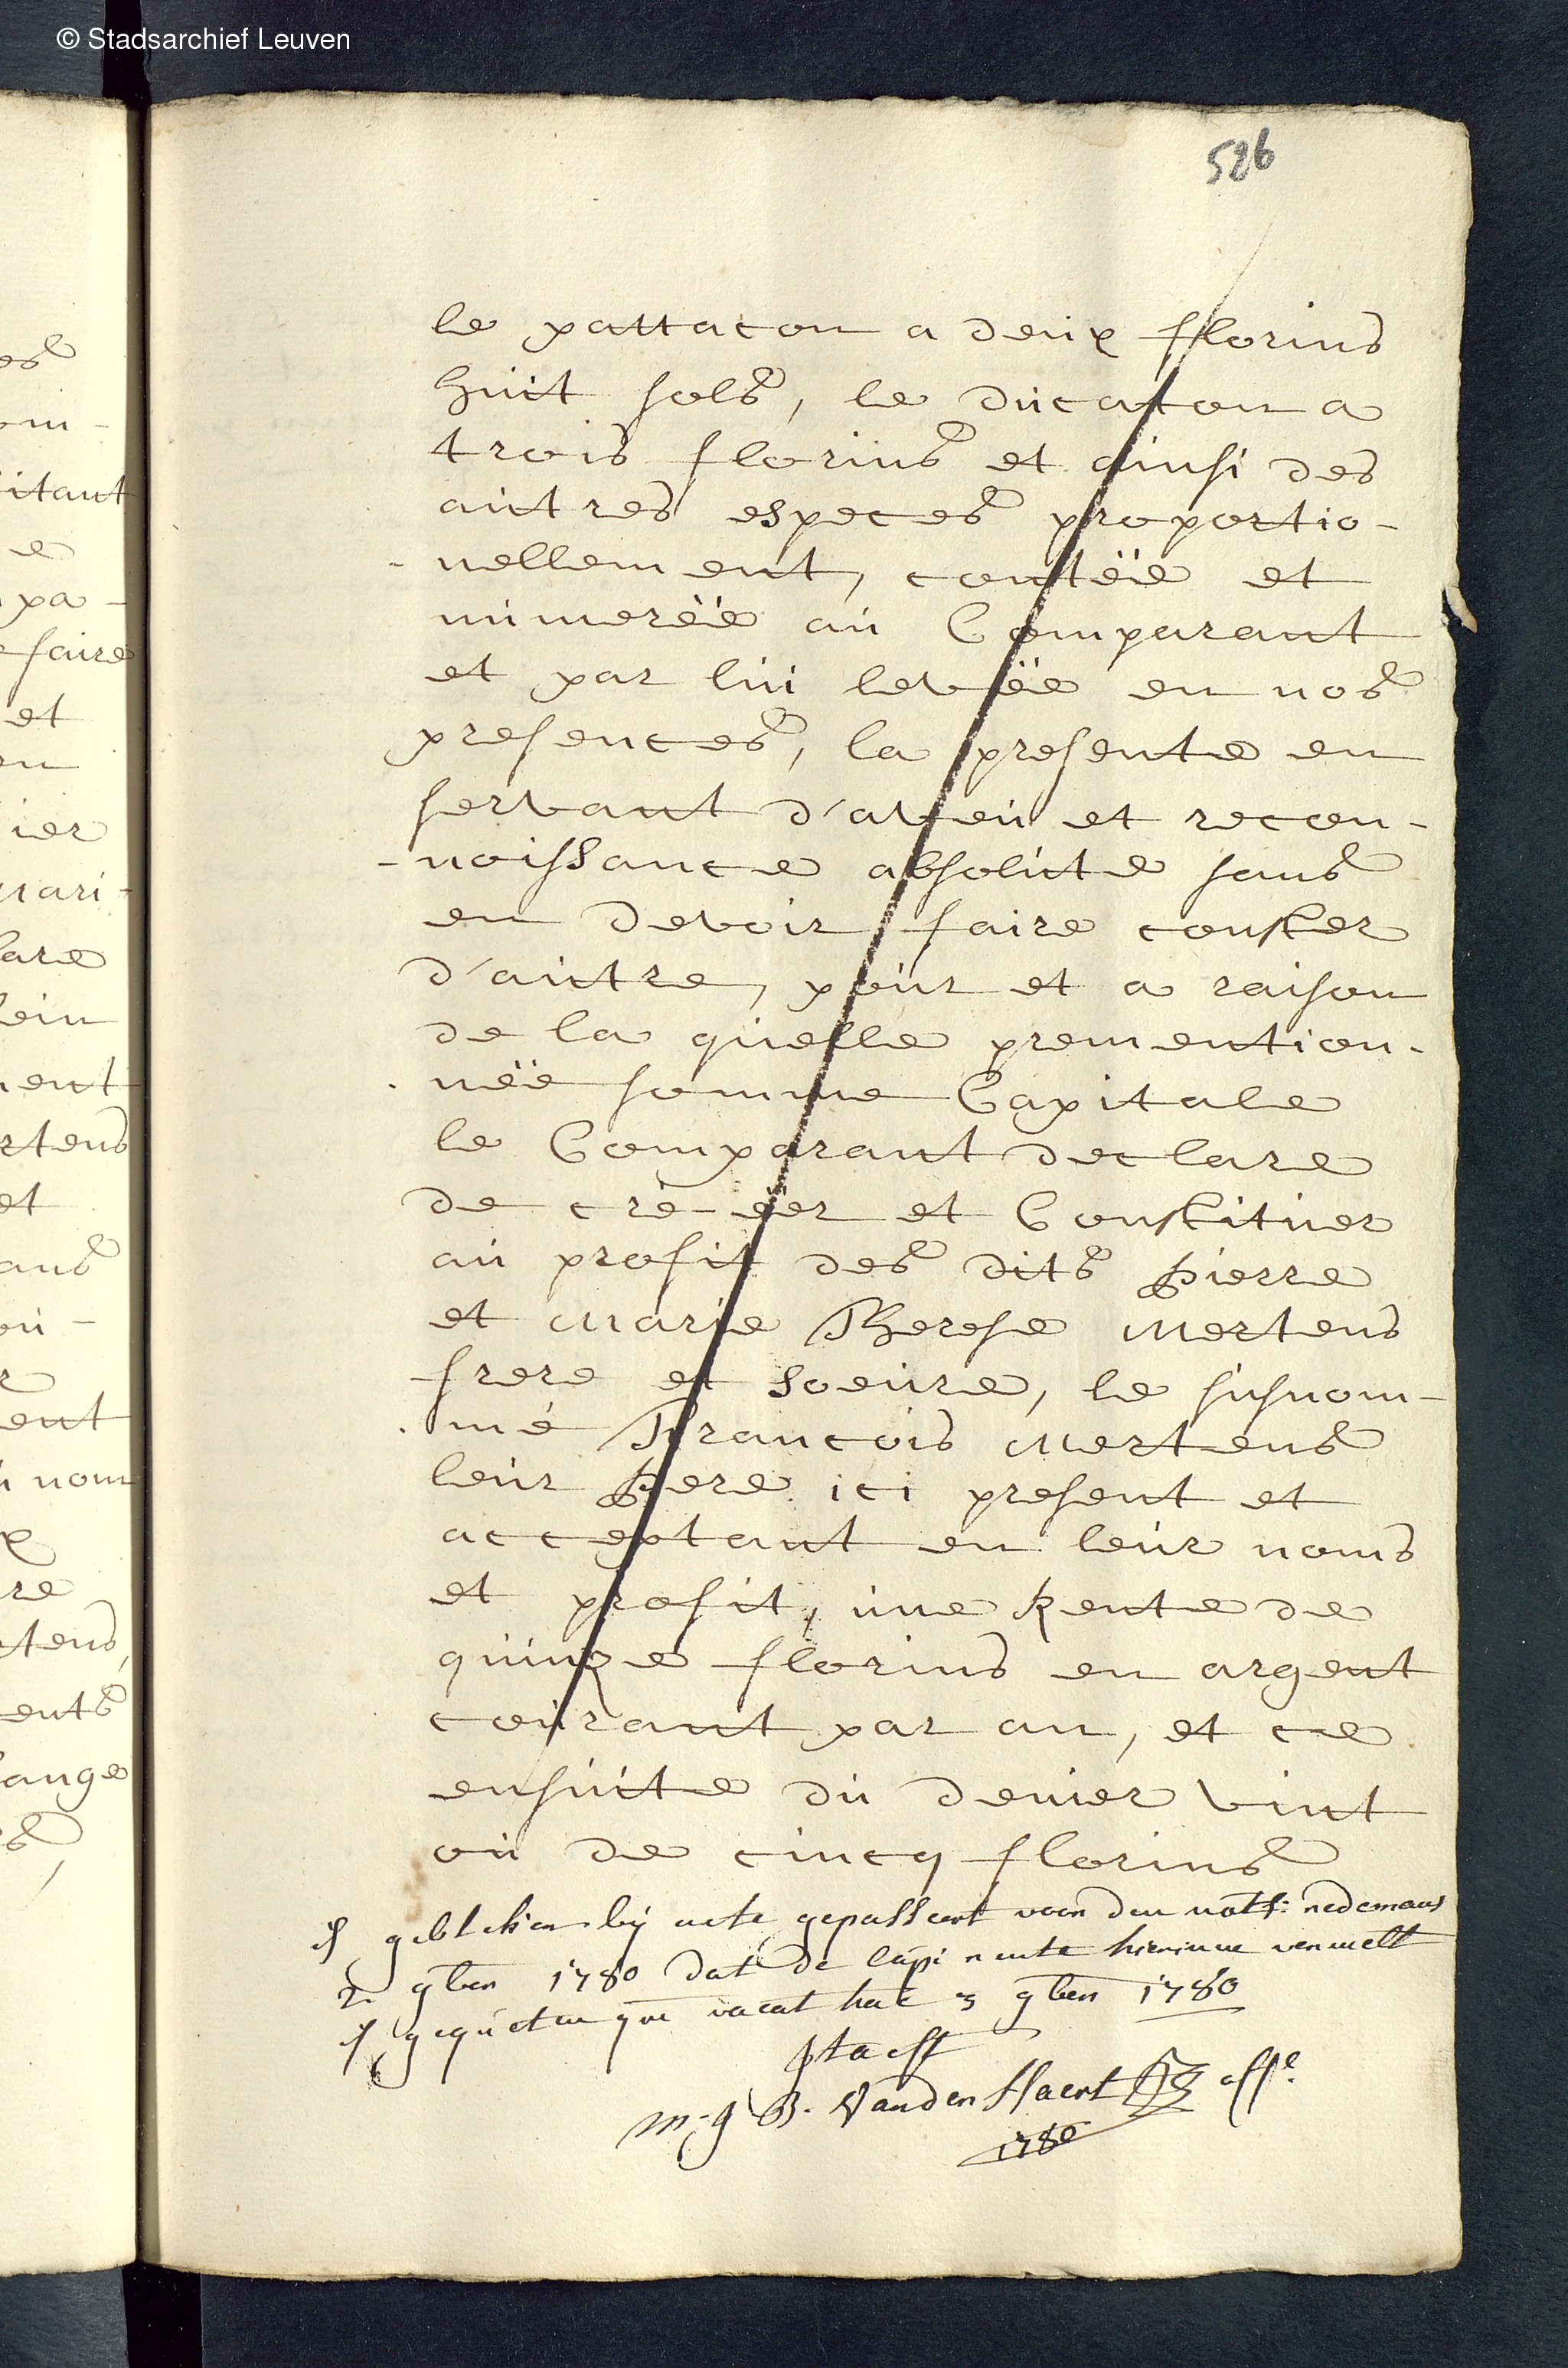 © Stadsarchief Leuven
526
le pattacon a deux florins
huit sols, le ducaton a
trois florins et ainsi des
autres especes proportio-
-nellement, contëe et
numerëe au Comparant
et par lui levëe en nos
presences, la presente en
servant d'aveu et recon-
-noissance absolute sans
en devoir faire conster
d'autre, pour et a raison
de la quelle premention-
-nëe somme Capitale
le Comparant declare
de crè-èer et Constituer
au profit des dits pierre
et Marie Therese Mertens
frere et soeure, le susnom-
-mé Francois Mertens
leur pere ici present et
acceptant en leur noms
et profit, une Rente de
quinze florins en argent
courant par an, et ce
ensuite du denier vint
ou de cincq florins
is gebleken bij acte gepasseert voor den nots: nedemans
2 9ber 1780 dat de capi rente hierinne vermelt
is gequeten vacat hac 3 9ber 1780
M. J. B. Vanden Haert
1780
es
om-
itant
e
pa-
faire
et
en
ier
mari-
lare
ein
ment
rtens
et
ans
ou-
r
ent
nom
x
re
tens,
ents
ange
s,